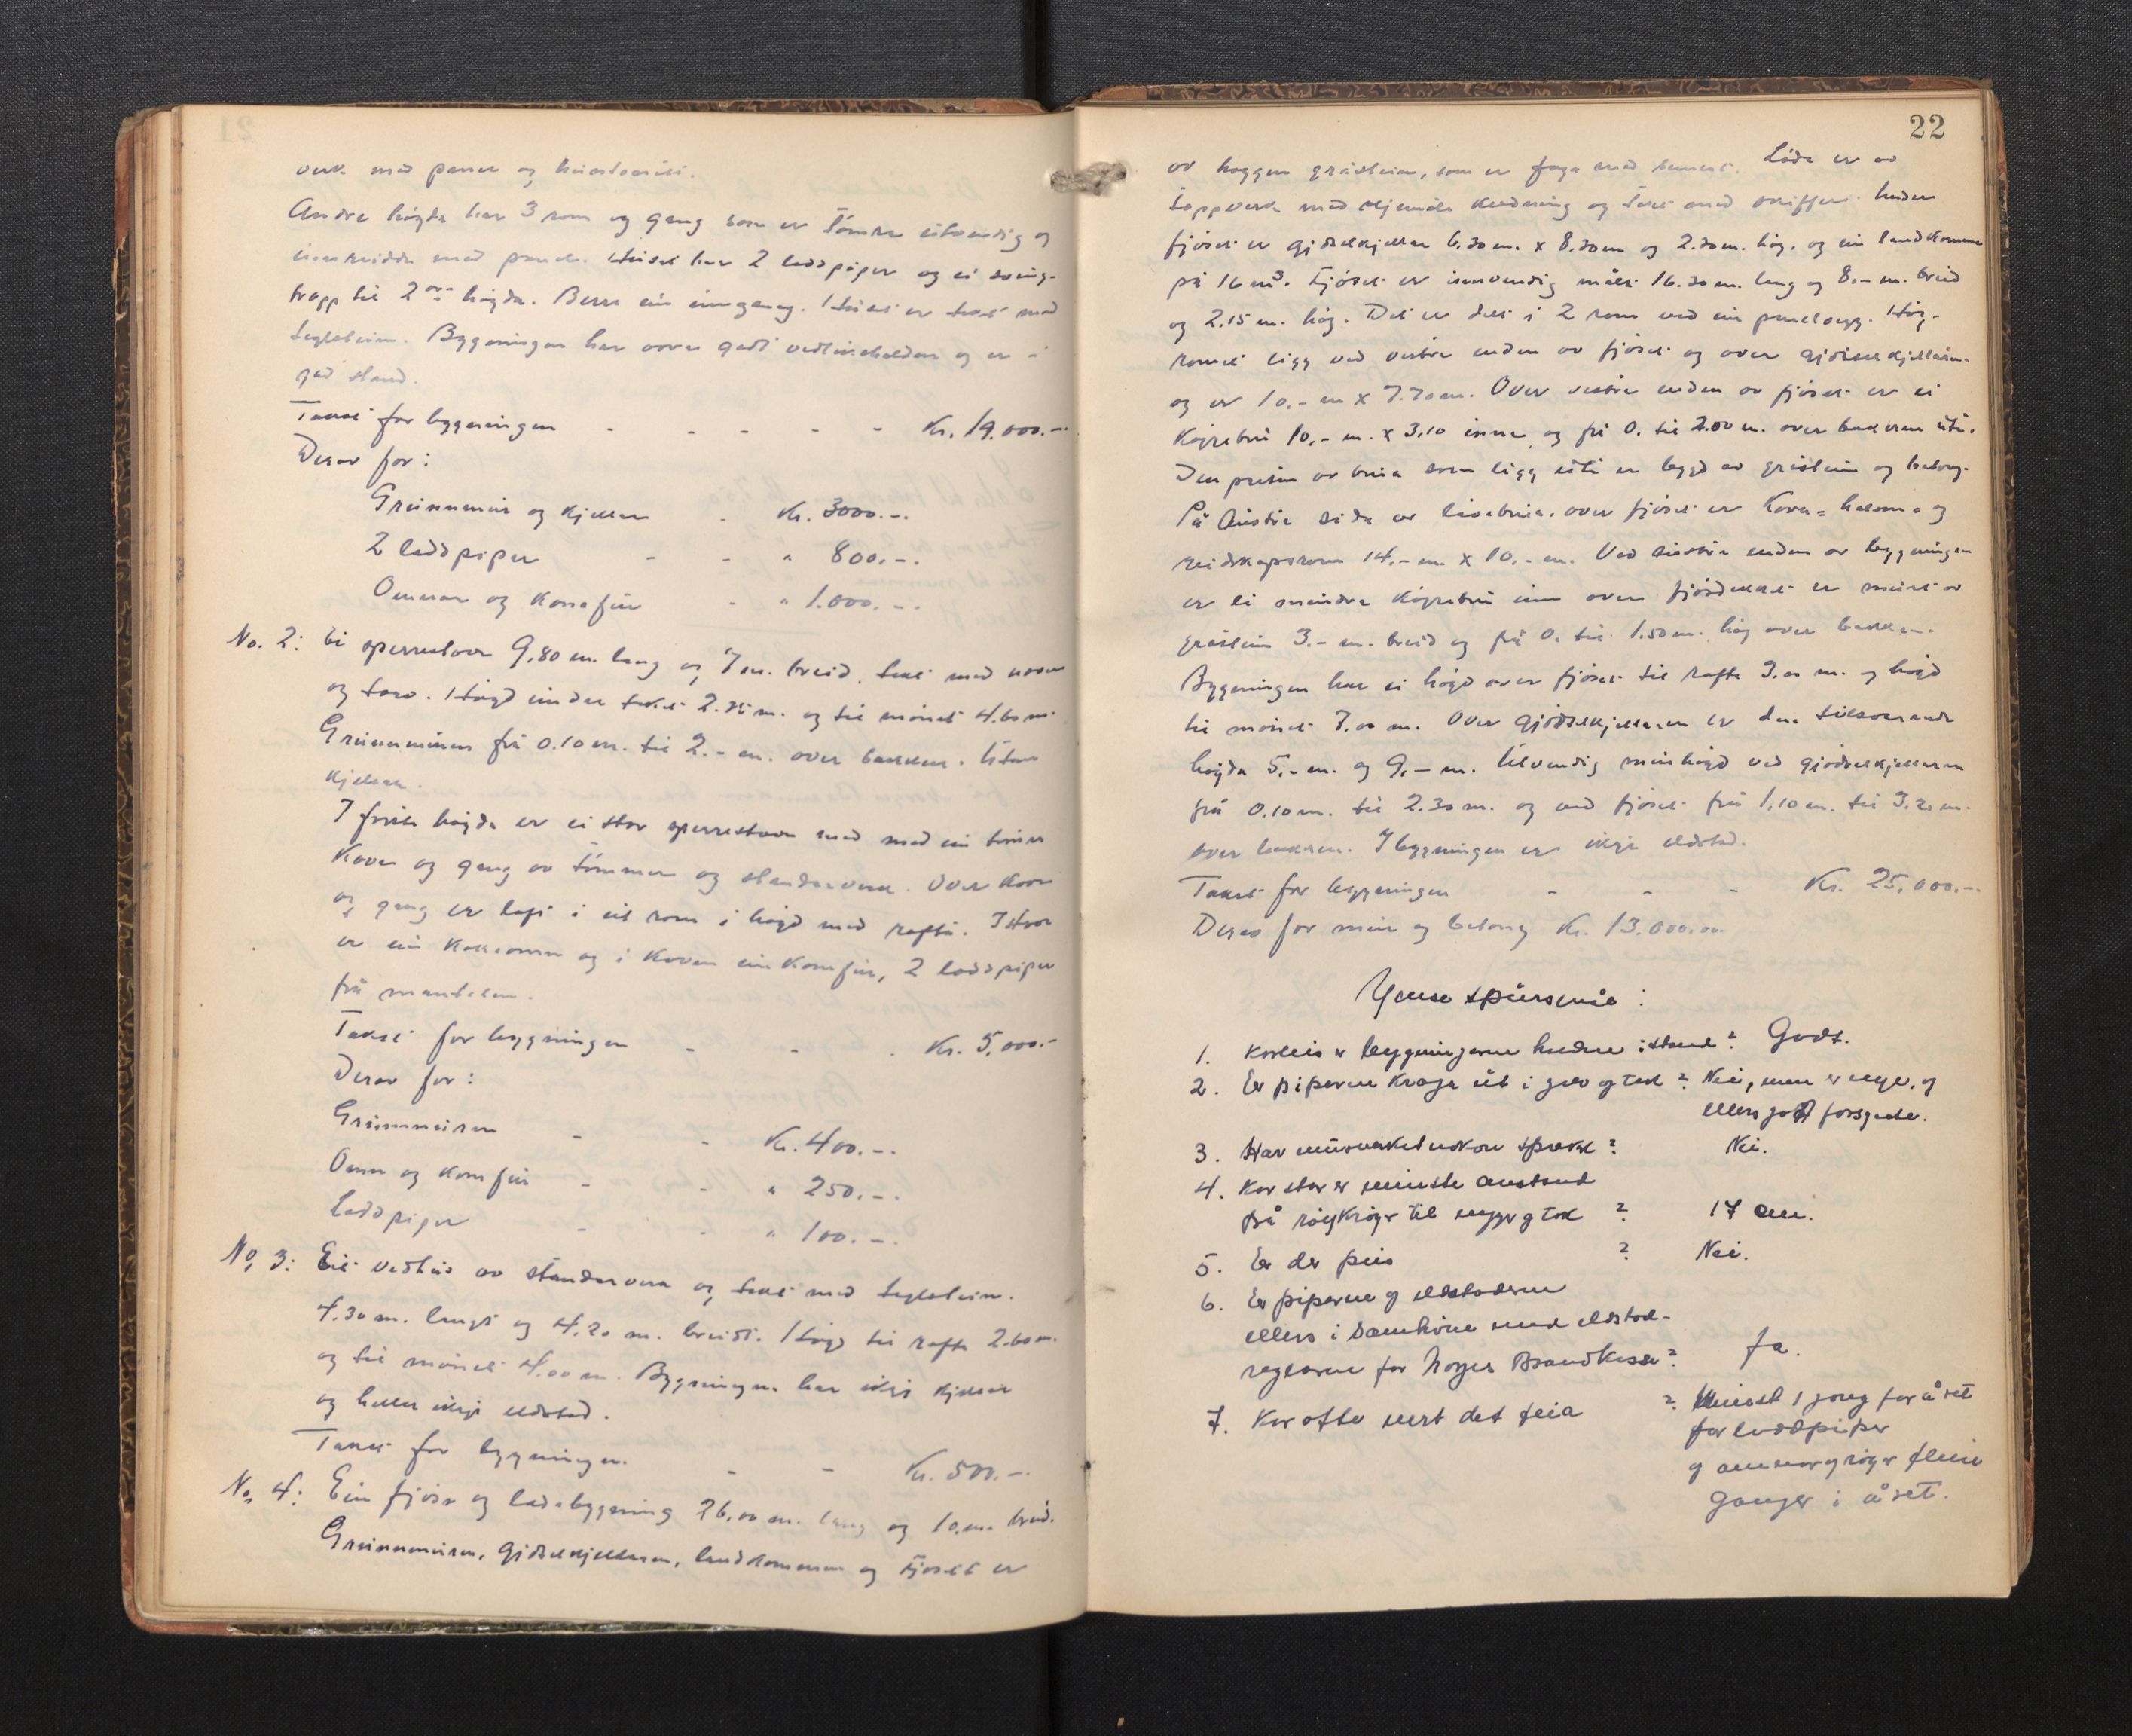 verk med panel og
Andre högda har 3 rom og gang som er tömra utvendig og
innreidde med panel. Huset har 2 laddpiper og ei sving-
trapp til 2 högda. Berre ein inngang. Huset er tekt med
teglstein. Bygningen har vore godt vedlikehalden og er i
god stand.
Takst for bygningen - - - - - Kr. 19.000.-
Derav for:
Grunnmur og kjellar - Kr. 3000.-.
2 laddpiper - - " 800.-.
Omnar og komfur - " 1.000.-.
No. 2: Ei sperrestova 9,80 m. lang og 7 m. breid, tekt med never
og torv. Högd under taket 2.75 m. og til mönet 4.60 m.
Grunnmuren frå 0.10 m. til 2.- m. over bakken. Utan
kjellar.
I förste högda er ei stor sperrestova med med ein tömra
Kove og gang av tömmer og standarverk. Over Kove
og gang er loft i eit rom i högd med rafta. I stova
er ein kakkelomn og i Koven ein Komfur, 2 laddpiper
frå
Takst for bygningen - - - Kr. 5.000.-
Derav for:
Grunnmuren - - Kr. 400.-.
Omn og komfur - - " 250.-.
Laddpiper - - " 100.-.
No. 3: Eit vedhus av standarverk og tekt med teglstein.
4.30 m. langt og 4.20 m. breidt. Högd til rafta 2.60 m.
og til mönet 4.00 m. Bygningen har ikkje kjellar
og heller ikkje eldstad.
Takst for bygningen. - - Kr. 500.-.
No. 4: Ein fjös og ladebygning 26.00 m. lang og 10. m. breid.
Grunnmuren, gjödselkjellaren, landkommen og fjöset er
22
av haggen gråstein, som er foga med sement. Löda er av
toppverk med kledning og tekt med skiffer. Under
fjöset er gjödselkjellar 6.30 m. x 8.30 m og 2.30 m. hög, og ein landkomme
på 16 m³. Fjöset er innvendig målt 16.30 m. lang og 8.- m. breid
og 2.15 m. hög. Det er delt i 2 rom med ein panelvegg. Höy-
romet ligg ved vestre enden av fjöset og over gjödselkjellaren
og er 10.- m x 7.70 m. Over vestre enden av fjöset er ei
Köyrebru 10.- m. x 3.10 inne og frå 0. til 2.00 m. over bakken ute.
Den parten av brua som ligg ute er bygd av gråstein og betong.
På Austre sida av låvebrua, over fjöset er Korn- halm- og
reidskapsrom 14.- m x 10.- m. Ved enden av bygningen
er ei mindre köyrebru inn over fjösdekket er murt av
gråstein 3.- m. breid og frå 0. til 1.50 m. hög over bakken.
Bygningen har ei högd over fjöset til rafta 3.00 m. og högd
til mönet 7.00 m. Over gjödselkjellaren er den tilsvarande
högda 5.- m. og 9.- m. Utvendig murhögd ved gjödselkjellaren
frå 0.10 m. til 2.30 m. og ved fjöset frå 1.10 m. til 3.20 m.
over bakken. I bygningen er ikkje eldstad.
Takst for bygningen - - - Kr. 25.000.-.
Derav for mur og betong Kr. 13.000.00.
Ymse spursmål:
1. Korleis er bygningarne haldne i stand? Godt.
2. Er piperne kraga ut i golv og tak? Nei, men er nye, og
ellers godt forsynte.
3. Har murverket nokon sprekk? Nei.
4. Kor stor er minste avstand
frå röykröyr til vegger og tak? 17 cm.
5. Er der peis ? Nei.
6. Er piperne og eldstaderne
ellers i samhöve med eldstad-
reglarne for Norges Brandkasse? Ja.
7. Kor ofte vert det feia ? Minst 1 gong for året
for laddpiper
og omnar og röyr fleire
Gonger i året.